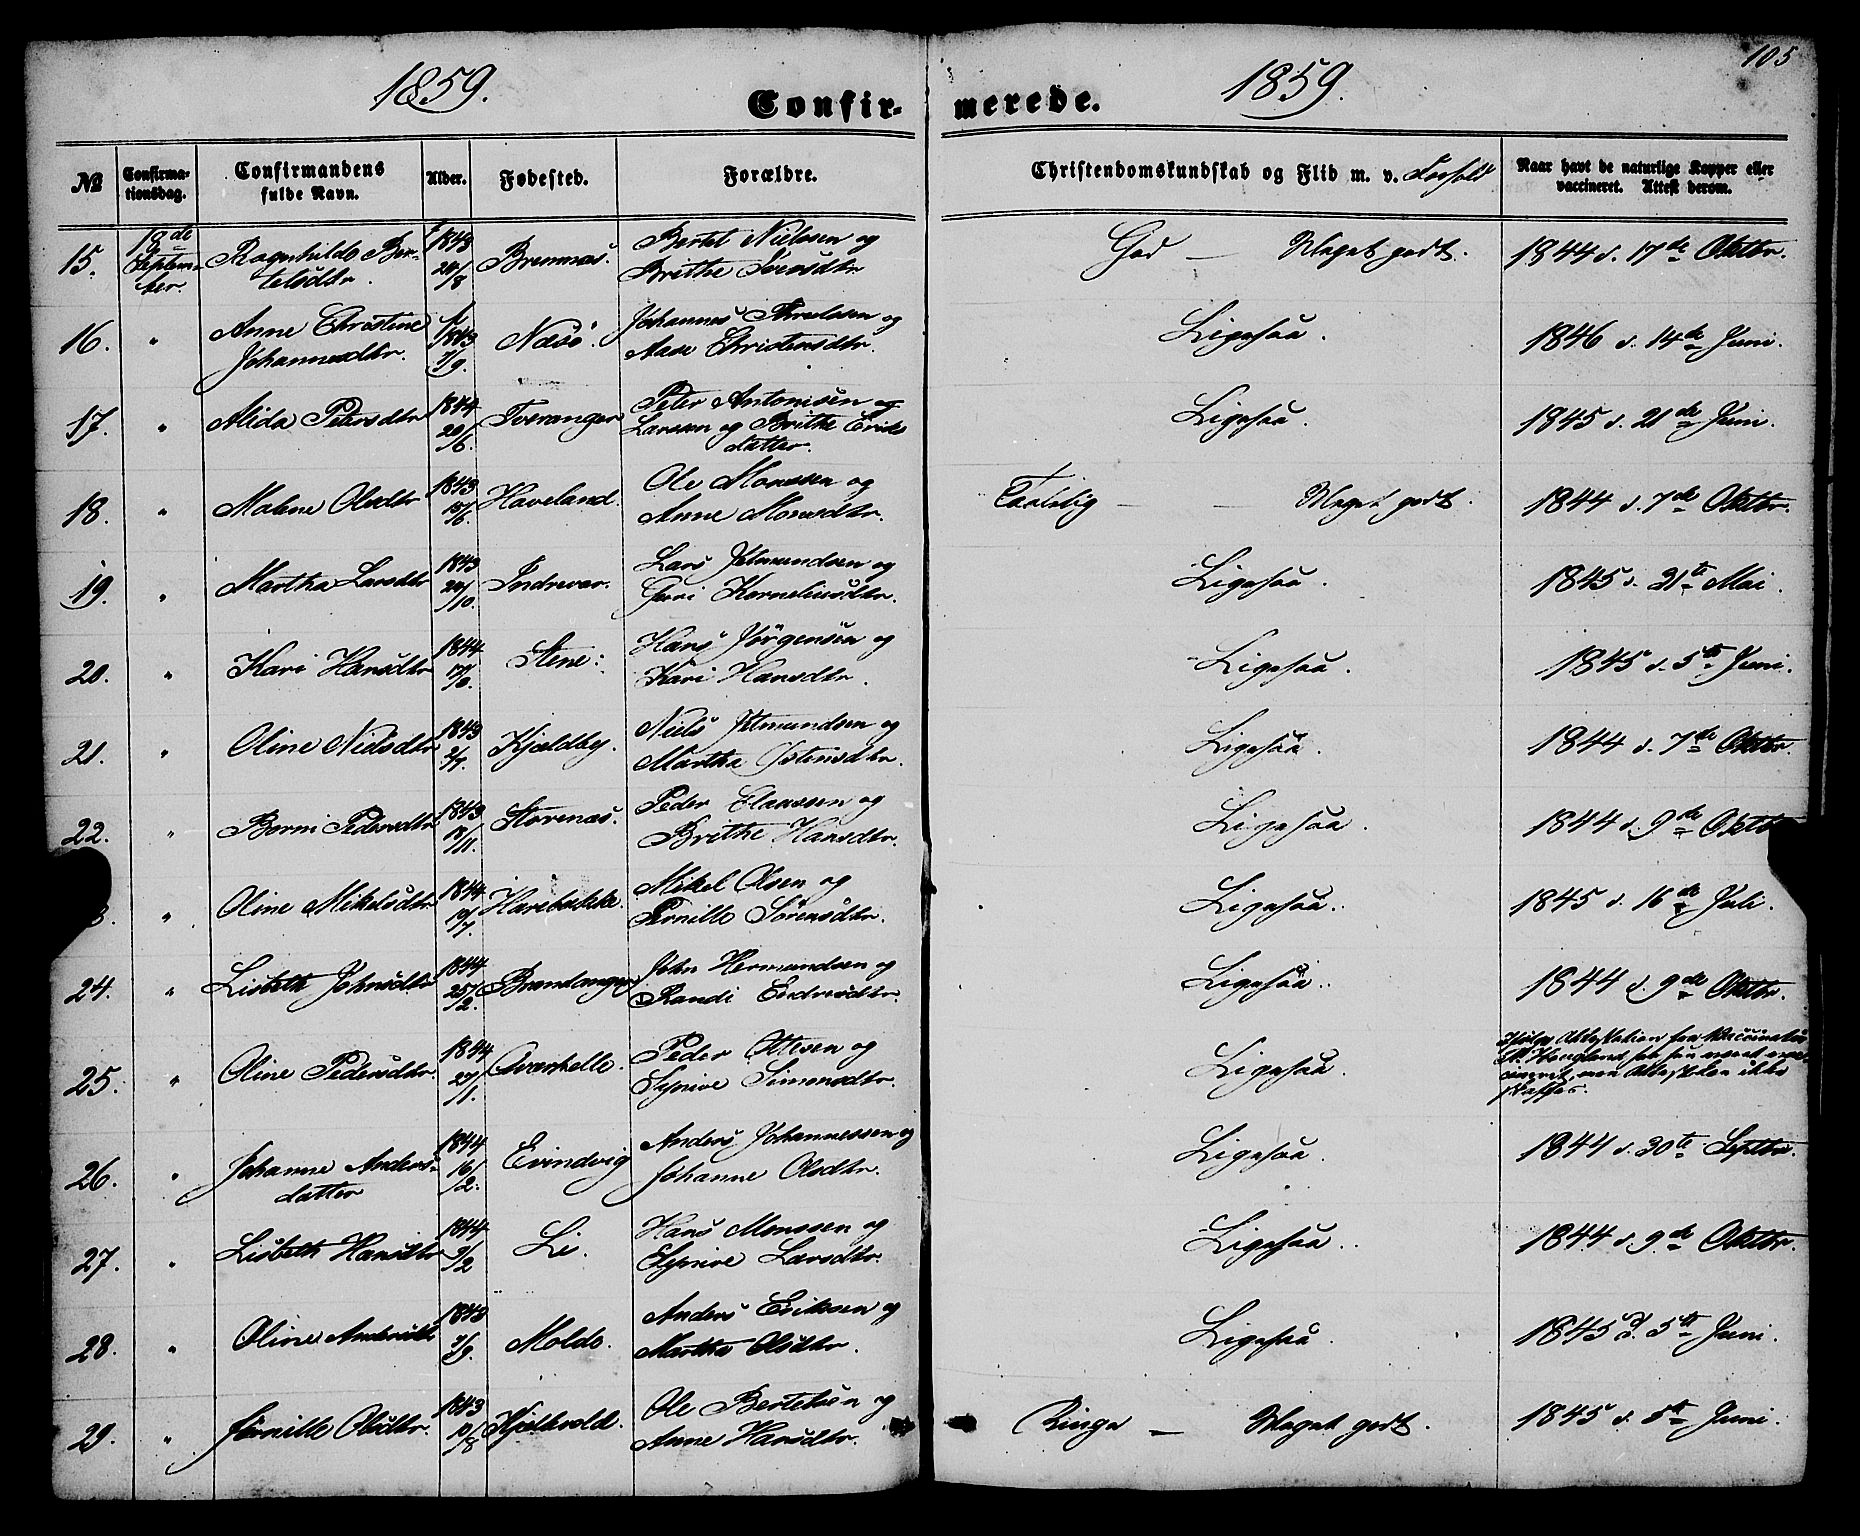 105
1859.
1859.
Confir-
merede.
№
Confirma-
tionsdag.
Confirmandens
fulde Navn.
Alder.
Fødested.
Forældre.
Christendomskundskab og Flid m. v. Forhold
Naar havt de naturlige Kopper eller
vaccineret. Attest derom.
15.
18de
Septem-
ber.
Ragnhilds Ber-
telsdtr.
1843
20/8
Brennæs.
Bertel Nielssen og
Brithe Iversdtr
God — Meget godt.
1844 d. 17de Oktbr.
16.
"
Anne Christine
Johannesdtr.
1843
7/9.
Næsö.
Johannes Truelssen og
Aase Christensdtr.
Ligesaa.
1846 d. 14de Juni.
17.
"
Alida Petersdtr
1844
20/6.
Tveranger
Peter Antonisen og
Larssen og Brithe Eriks
datter.
Ligesaa.
1845 d. 21de Juni.
18.
"
Malene Olsdtr
1843
15/6.
Haveland.
Ole Monssen og
Anne Monsdtr.
Taalelig — — Meget godt.
1844 d. 7de Oktbr.
19.
"
Martha Larsdtr
1843
20/10.
Indrevær.
Lars Ilmundsen og
Guri Korneliusdtr.
Ligesaa.
1845 d. 31te Mai.
20.
"
Kari Hansdtr
1844
Stene:
Hans Jörgensen og
Kari Hansdtr.
Ligesaa.
1845 d. 5te Juni.
21.
"
Oline Nielsdtr
1843
2/7.
Kjældby.
Niels Ilmundsen og
Martha Ostensdtr.
Ligesaa.
1844 d. 7de Oktbr.
22.
"
Berni Pedersdtr
1843
18/11.
Storenæs.
Peder Claussen og
Brithe Hansdtr.
Ligesaa.
1844 d. 9de Oktbr
3.
"
Oline Mikelsdtr
1844
19/7.
Harebakke.
Mikel Olsen og
Pernille Sörensdtr.
Ligesaa.
1845 d. 16de Juli.
24.
"
Lisbeth Johnsdtr
1844
25/2.
Brandanger
John Hermundsen og
Randi Endresdtr.
Ligesaa.
1844 d. 9de Oktbr.
25.
"
Oline Pedersdtr.
1844
27/1.
Peder Ottesen og
Synive Simonsdtr.
Ligesaa.
Ifølge Attestation fra Vaccinatör
Hougland skal hun været vac-
cineret, men Attest kan ikke
skaffes.
26.
"
Johanne Anders-
datter
1844
16/2.
Evindvig
Anders Johannessen og
Johanne Olsdtr.
Ligesaa.
1844 d. 30te Septbr.
27.
"
Lisbeth Hansdtr
1844
9/2
Li.
Hans Monssen og
Synive Larsdtr.
Ligesaa.
1844 d. 9de Oktbr.
28.
"
Oline Andersdtr
1843
7/9.
Molde.
Anders Erikssen og
Martha Olsdtr.
Ligesaa.
1845 d. 5te Juni.
29.
"
Pernille Olsdtr.
1843
10/8
Kjelkvold.
Ole Bertelsen og
Anne Hansdtr.
Ringe — Meget godt.
1845 d. 5te Juni.